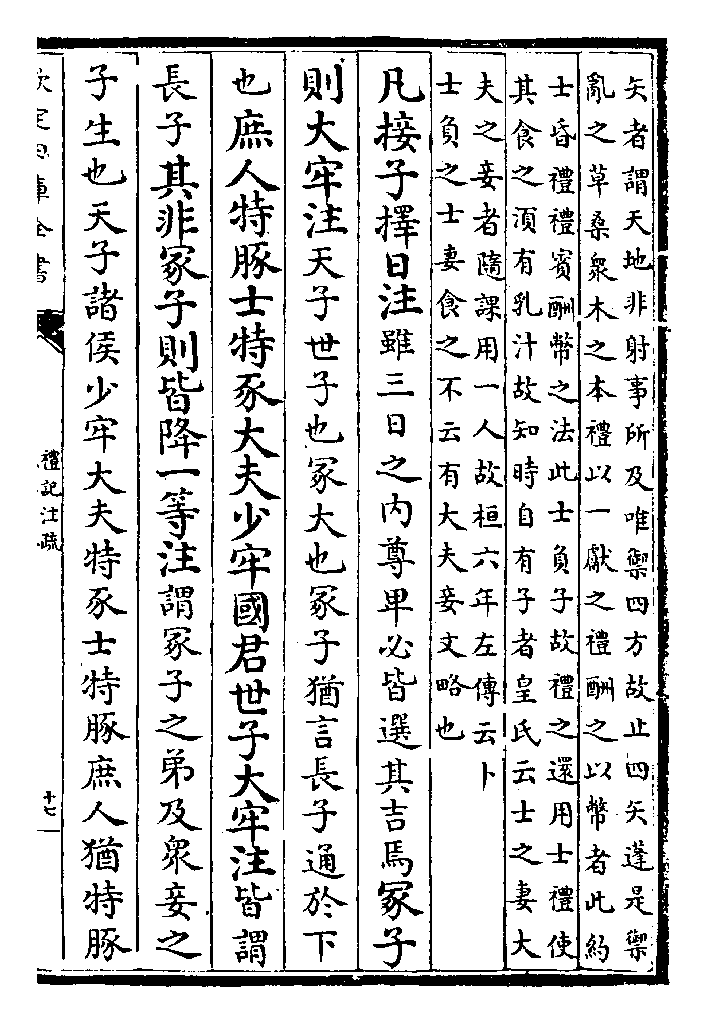 矢者謂天地非射事所及唯禦四方故止四矢蓬是禦
亂之草桑衆木之本禮以一獻之禮酬之以幣者此約
士昏禮禮賓酬幣之法此士負子故禮之還用士禮使
其食之須有乳汁故知時自有子者皇氏云士之妻大
夫之妾者隨課用一人故桓六年左傳云卜
士負之士妻食之不云有大夫妾文略也
凡接子擇日注雖三日之内尊卑必皆選其吉焉冢子
則大牢注天子世子也冢大也冢子猶言長子通於下
也庶人特豚士特豕大夫少牢國君世子大牢注皆謂
長子其非冢子則皆降一等注謂冢子之弟及衆妾之
子生也天子諸侯少牢大夫特豕士特豚庶人猶特豚
欽定四庫全書
禮記注疏
十七